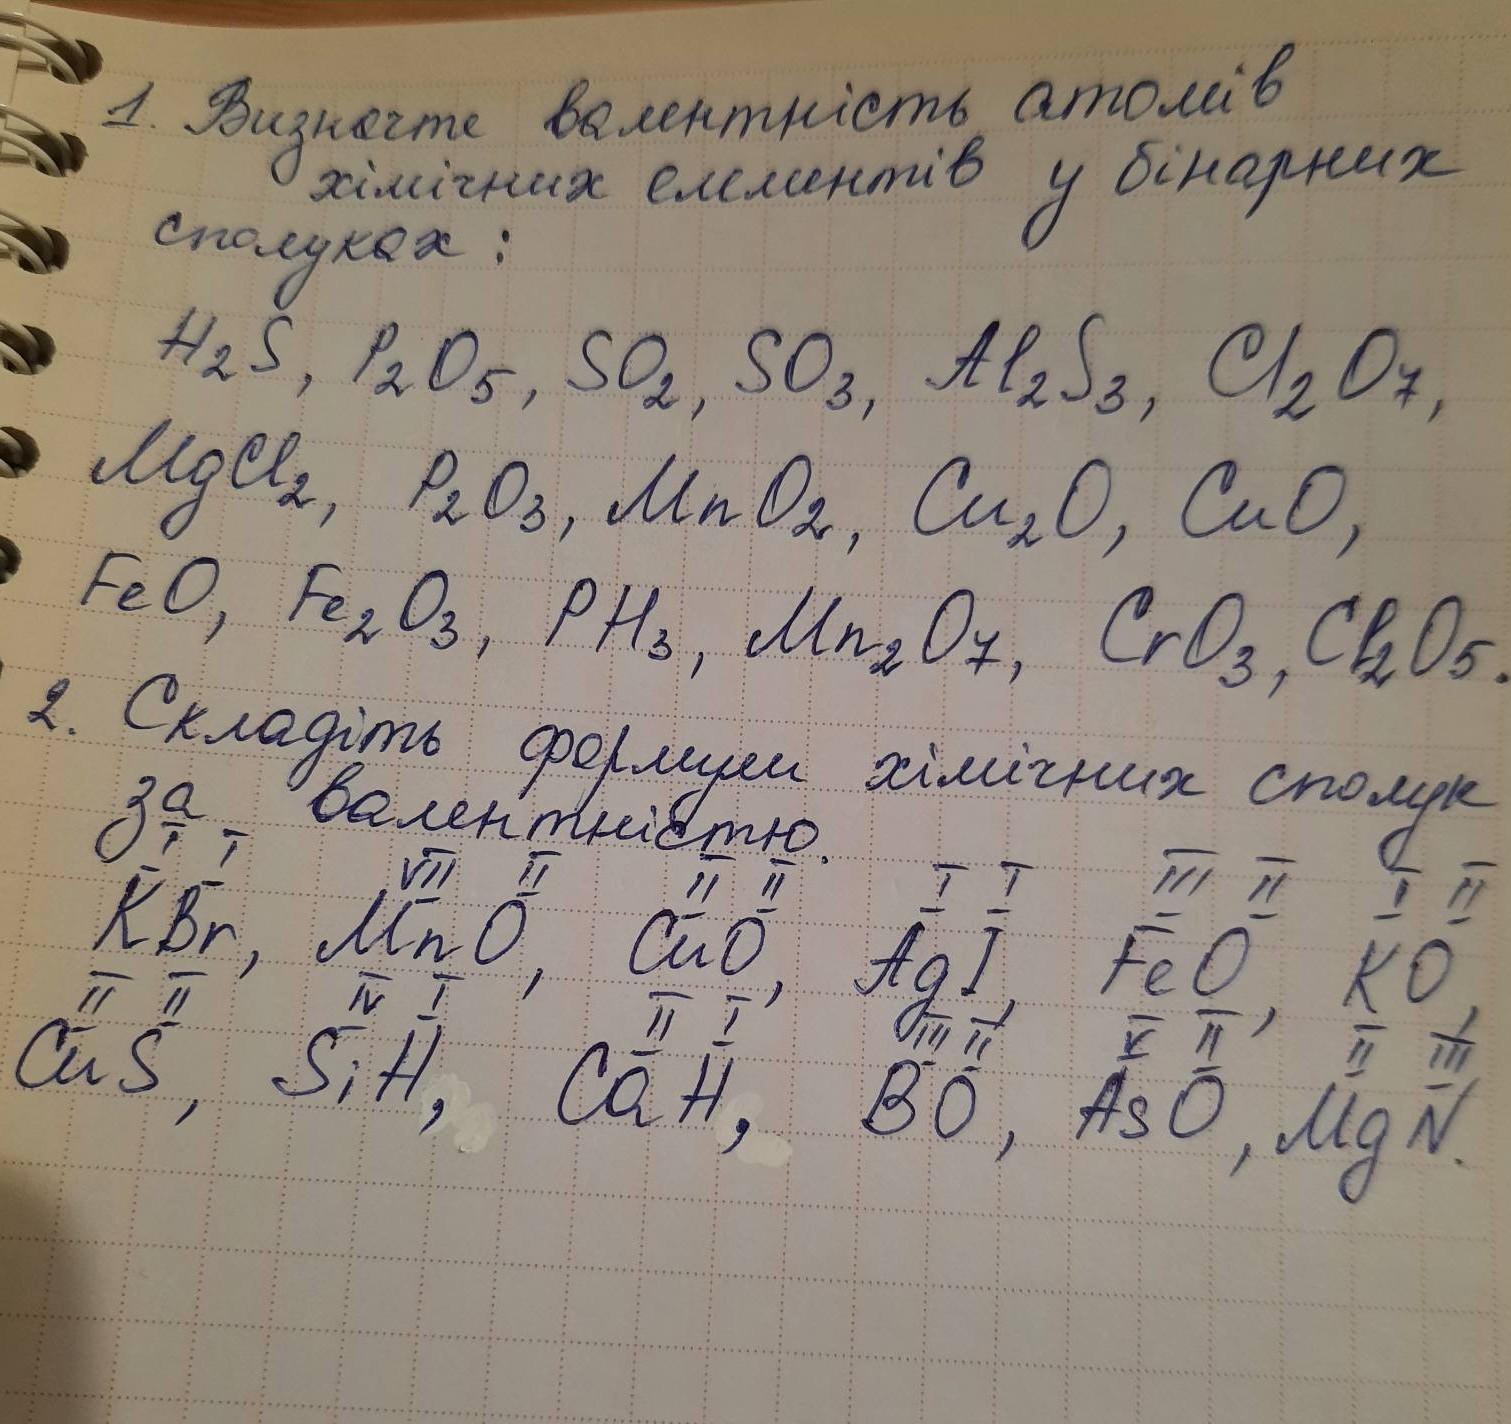 1. Визначте валентність атомів
хімічних елементів у бінарних
сполуках:
H₂S, P₂O₅, SO₂, SO₃, Al₂S₃, Cl₂O₇,
MgCl₂, P₂O₃, MnO₂, Cu₂O, CuO,
FeO, Fe₂O₃, PH₃, Mn₂O₇, CrO₃, Cl₂O₅.
2. Складіть формули хімічних сполук
за валентністю.
I I VII II II II I I III II I II
KBr, MnO, CuO, AgI, FeO, KO,
II II IV I II I III II V II II III
CuS, SiH, CaH, BO, AsO, MgN.